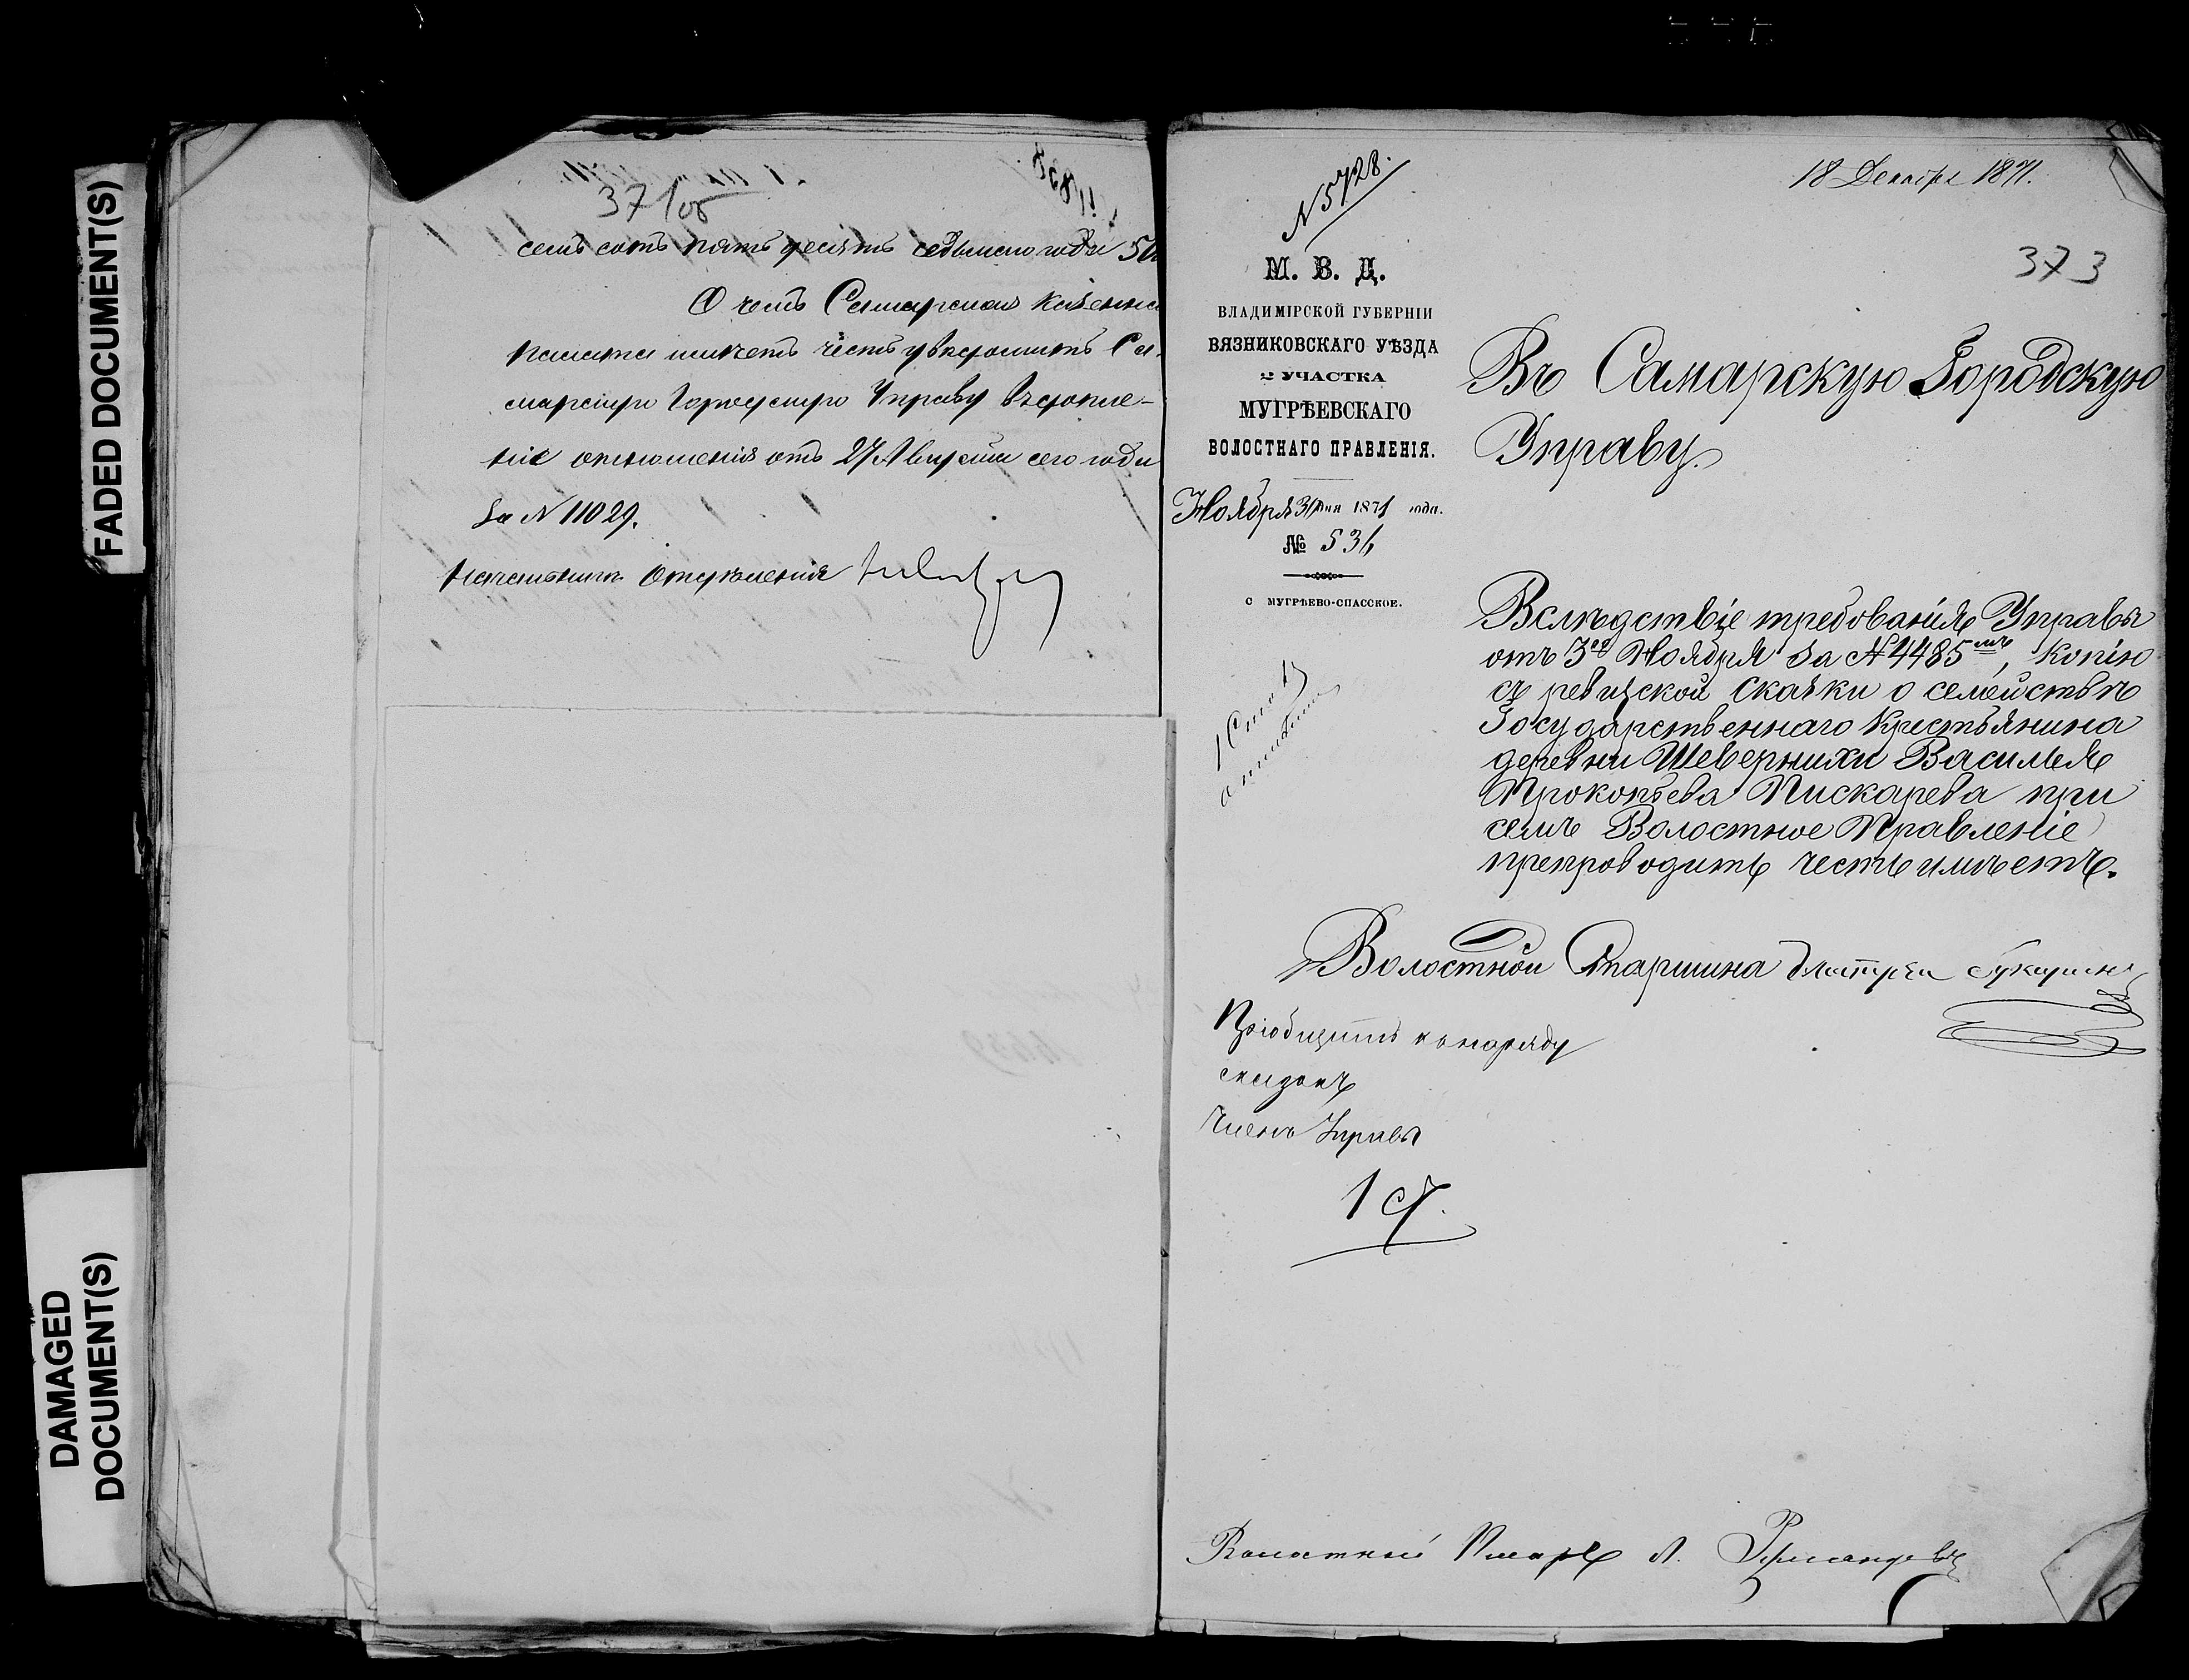 FADED DOCUMENT(S)
DAMAGED
DOCUMENT(S)
37/об
семь сотъ пять десятъ седьмого года
О чемъ Самарская Казенная
Палата имѣетъ честь увѣдомить Са-
марскую Городскую Управу въ допол-
ніе отношенія отъ 27 Августа сего года
За N 11029.
Начальникъ Отдѣленія
N 5728.
18 Декабря 1871.
373
М. В. Д.
ВЛАДИМІРСКОЙ ГУБЕРНІИ
ВЯЗНИКОВСКАГО УѢЗДА
2 УЧАСТКА
МУГРѢЕВСКАГО
ВОЛОСТНАГО ПРАВЛЕНІЯ.
Ноября дня 1871 года.
№ 536
С МУГРѢЕВО-СПАССКОЕ.
Въ Самарскую Городскую
Управу.
Вслѣдствіе требованія Управы
отъ 3го Ноября за N 4485мъ, копію
съ ревизской сказки о семействѣ
Государственнаго Крестьянина
деревни Шевернихи Василья
Прокопьева Пискарева при
семъ Волостное Правленіе
препроводить честь имѣетъ.
1 Столъ
Волостной Старшина
Пріобщить къ наряду
сказокъ
Членъ Управы
1 ст.
Волостной Писарь